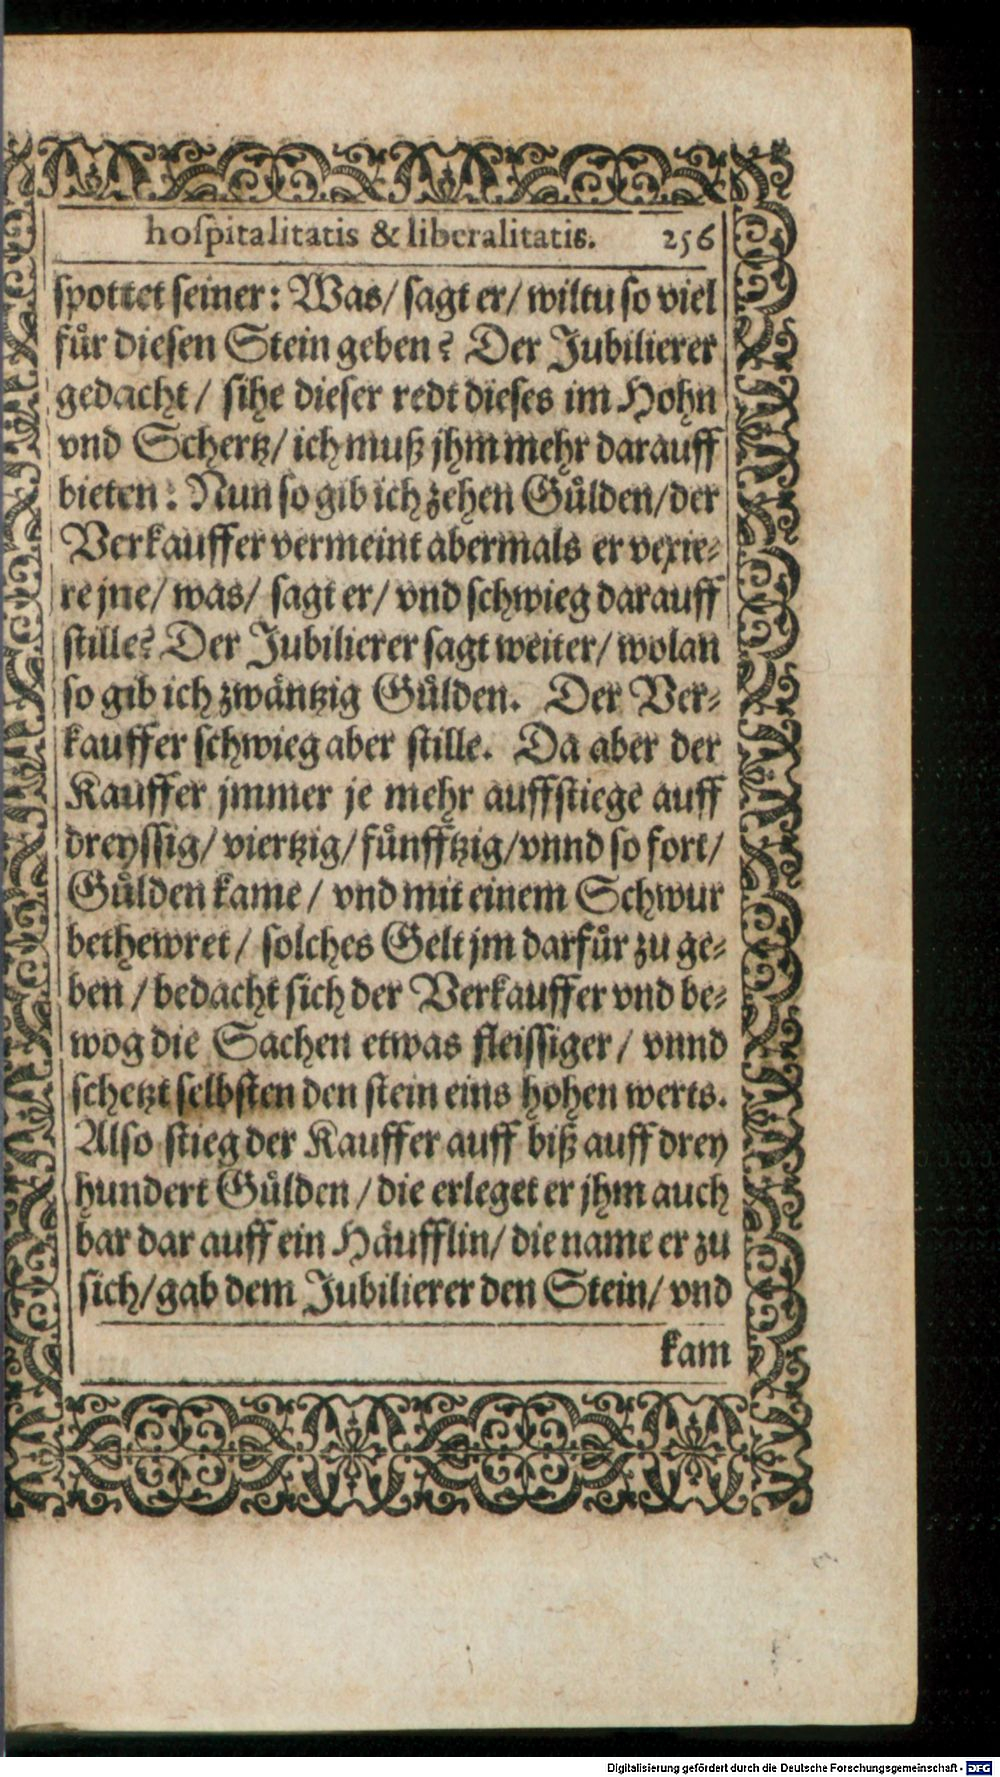 hoſpitalitatis & liberalitatis. 256
ſpottet ſeiner: Was/ ſagt er/ wiltu ſo viel
fuͤr dieſen Stein geben? Der Jubilierer
gedacht/ ſihe dieſer redt dieſes im Hohn
vnd Schertz/ ich muß jhm mehr darauff
bieten: Nun ſo gib ich zehen Guͤlden/ der
Verkauffer vermeint abermals er vexie⸗
re jne/ was/ ſagt er/ vnd ſchwieg darauff
ſtille? Der Jubilierer ſagt weiter/ wolan
ſo gib ich zwaͤntzig Guͤlden. Der Ver⸗
kauffer ſchwieg aber ſtille. Da aber der
Kauffer jmmer je mehr auffſtiege auff
dreyſſig/ viertzig/ fuͤnfftzig/ vnnd ſo fort/
Guͤlden kame/ vnd mit einem Schwur
bethewret/ ſolches Gelt jm darfuͤr zu ge⸗
ben/ bedacht ſich der Verkauffer vnd be⸗
wog die Sachen etwas fleiſſiger/ vnnd
ſchetzt ſelbſten den ſtein eins hohen werts.
Alſo ſtieg der Kauffer auff biß auff drey
hundert Guͤlden/ die erleget er jhm auch
bar dar auff ein Haͤufflin/ die name er zu
ſich/ gab dem Jubilierer den Stein/ vnd
kam
Digitalisierung gefördert durch die Deutsche Forschungsgemeinschaft - DFG